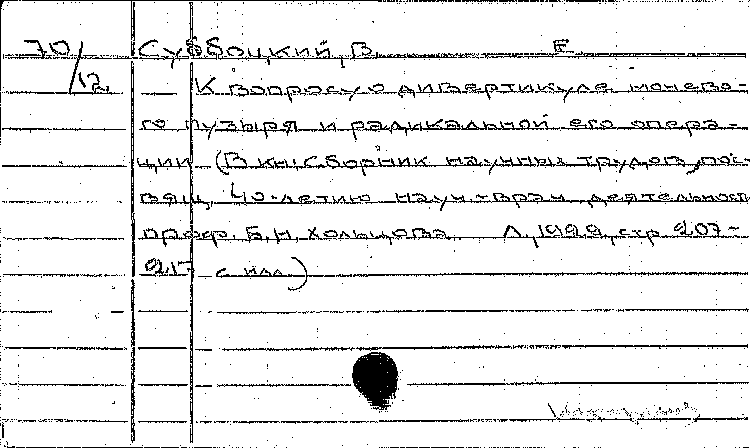 70/12 Субботский, В. Е.
К вопросу о дивертикуле мочево-
го пузыря и радикальной его опера-
ции (В кн.: Сборник научных трудов, пос-
вящ. 40-летию науч.-врач. деятельност
проф. Б.Н. Хольцова. Л., 1929, стр 207-
217 с илл.)